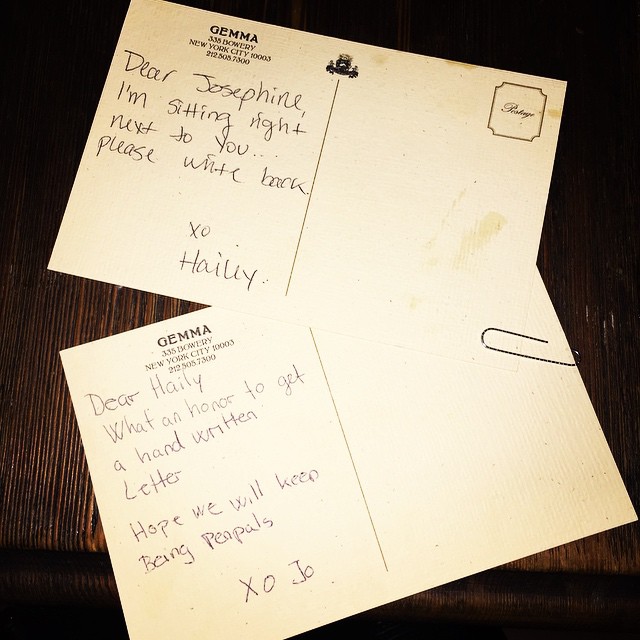 GEMMA
335 BOWERY
NEW YORK CITY 10003
212.505.7300
Dear Josephine,
I'm sitting right
next to you...
please write back.
xo
Hailiy.
Postage
GEMMA
335 BOWERY
NEW YORK CITY 10003
212.505.7300
Dear Haily
What an honor to get
a hand written
Letter
Hope we will keep
Being Penpals
XO Jo